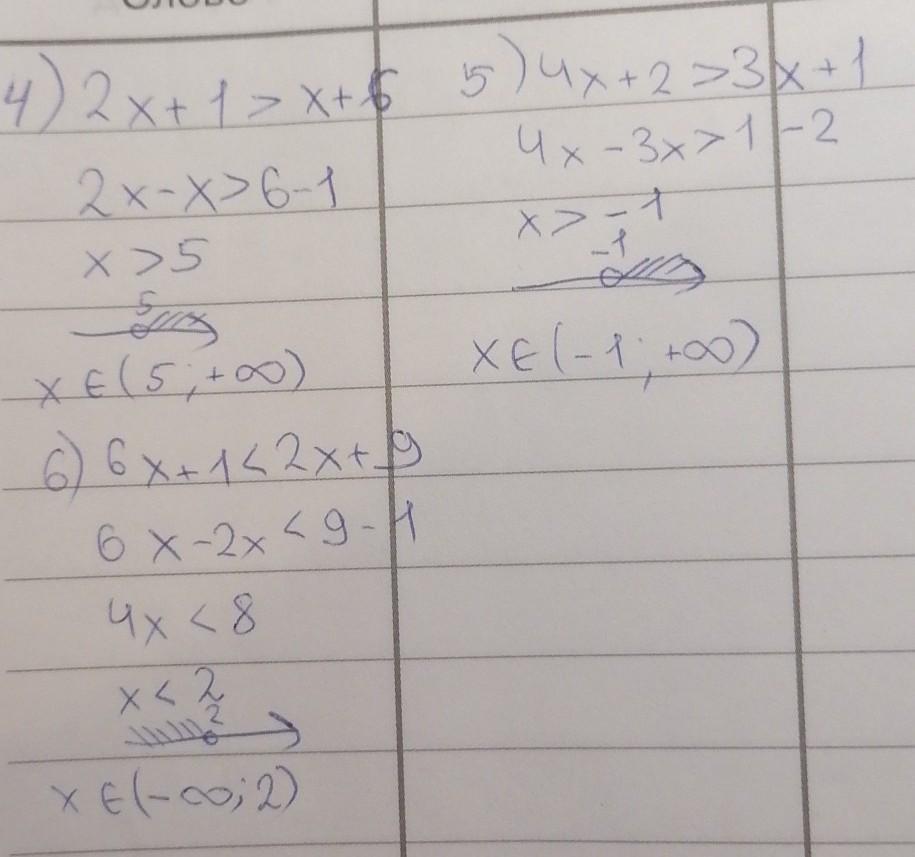 4) 2x+1 > x+6
2x-x>6-1
x >5
5
x ∈ (5 ; +∞)
5) 4x+2 >3x+1
4x -3x>1 -2
x > -1
-1
x ∈ (-1 ; +∞)
6) 6x+1<2x+9
6x-2x < 9-1
4x < 8
x < 2
2
x ∈ (-∞; 2)